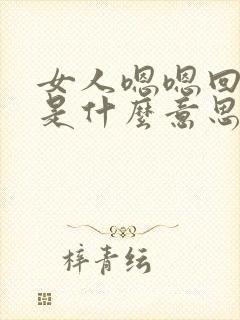 女人嗯嗯回
是什麼意思
梓青纭